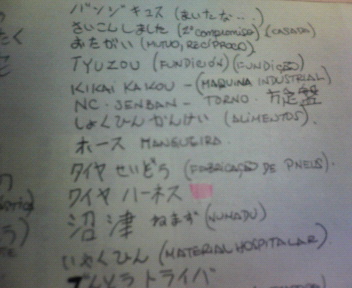 バツジキュス (まいたな...)
さいこんしました (2º compromisso) (CASADA)
おたがい (MUTUO, RECÍPROCO)
TYUZOU (FUNDICIÓN) (FUNDIÇÃO)
KIKAI KAKOU - (MAQUINA INDUSTRIAL)
NC. SENBAN - TORNO. 旋盤
しょくひん かんけい (ALIMENTOS).
ホース MANGUEIRA
タイヤ せいぞう (FABRICAÇÃO DE PNEUS).
ワイヤ ハーネス
沼津 ぬまず (NUMADU)
いやくひん (MATERIAL HOSPITALAR)
でんどう ドライバ
たく